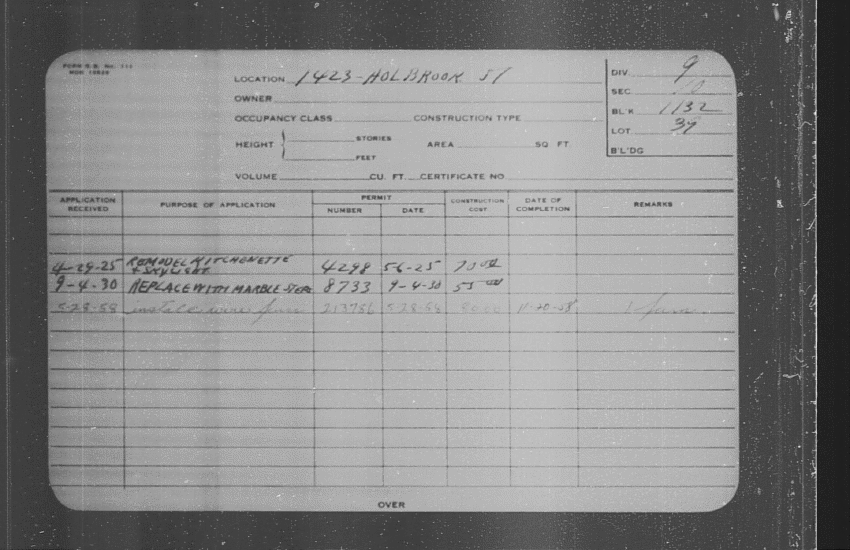 FORM B.B. No. 111
LOCATION 1423-HOLBROOK ST
DIV. 9
OWNER
SEC. 10
BL'K 1132
OCCUPANCY CLASS CONSTRUCTION TYPE
LOT 39
HEIGHT STORIES AREA SQ FT.
FEET
B'L'DG
VOLUME CU. FT. CERTIFICATE NO
APPLICATION RECEIVED PURPOSE OF APPLICATION PERMIT NUMBER DATE CONSTRUCTION COST DATE OF COMPLETION REMARKS
4-29-25 REMODEL KITCHENETTE 4298 5-6-25 70 00
+ SKYLIGHT
9-4-30 REPLACE WITH MARBLE STEPS 8733 9-4-30 55 00
5-28-58 install wires 213786 5-28-58 80.00 11-20-58 1 fam.
OVER